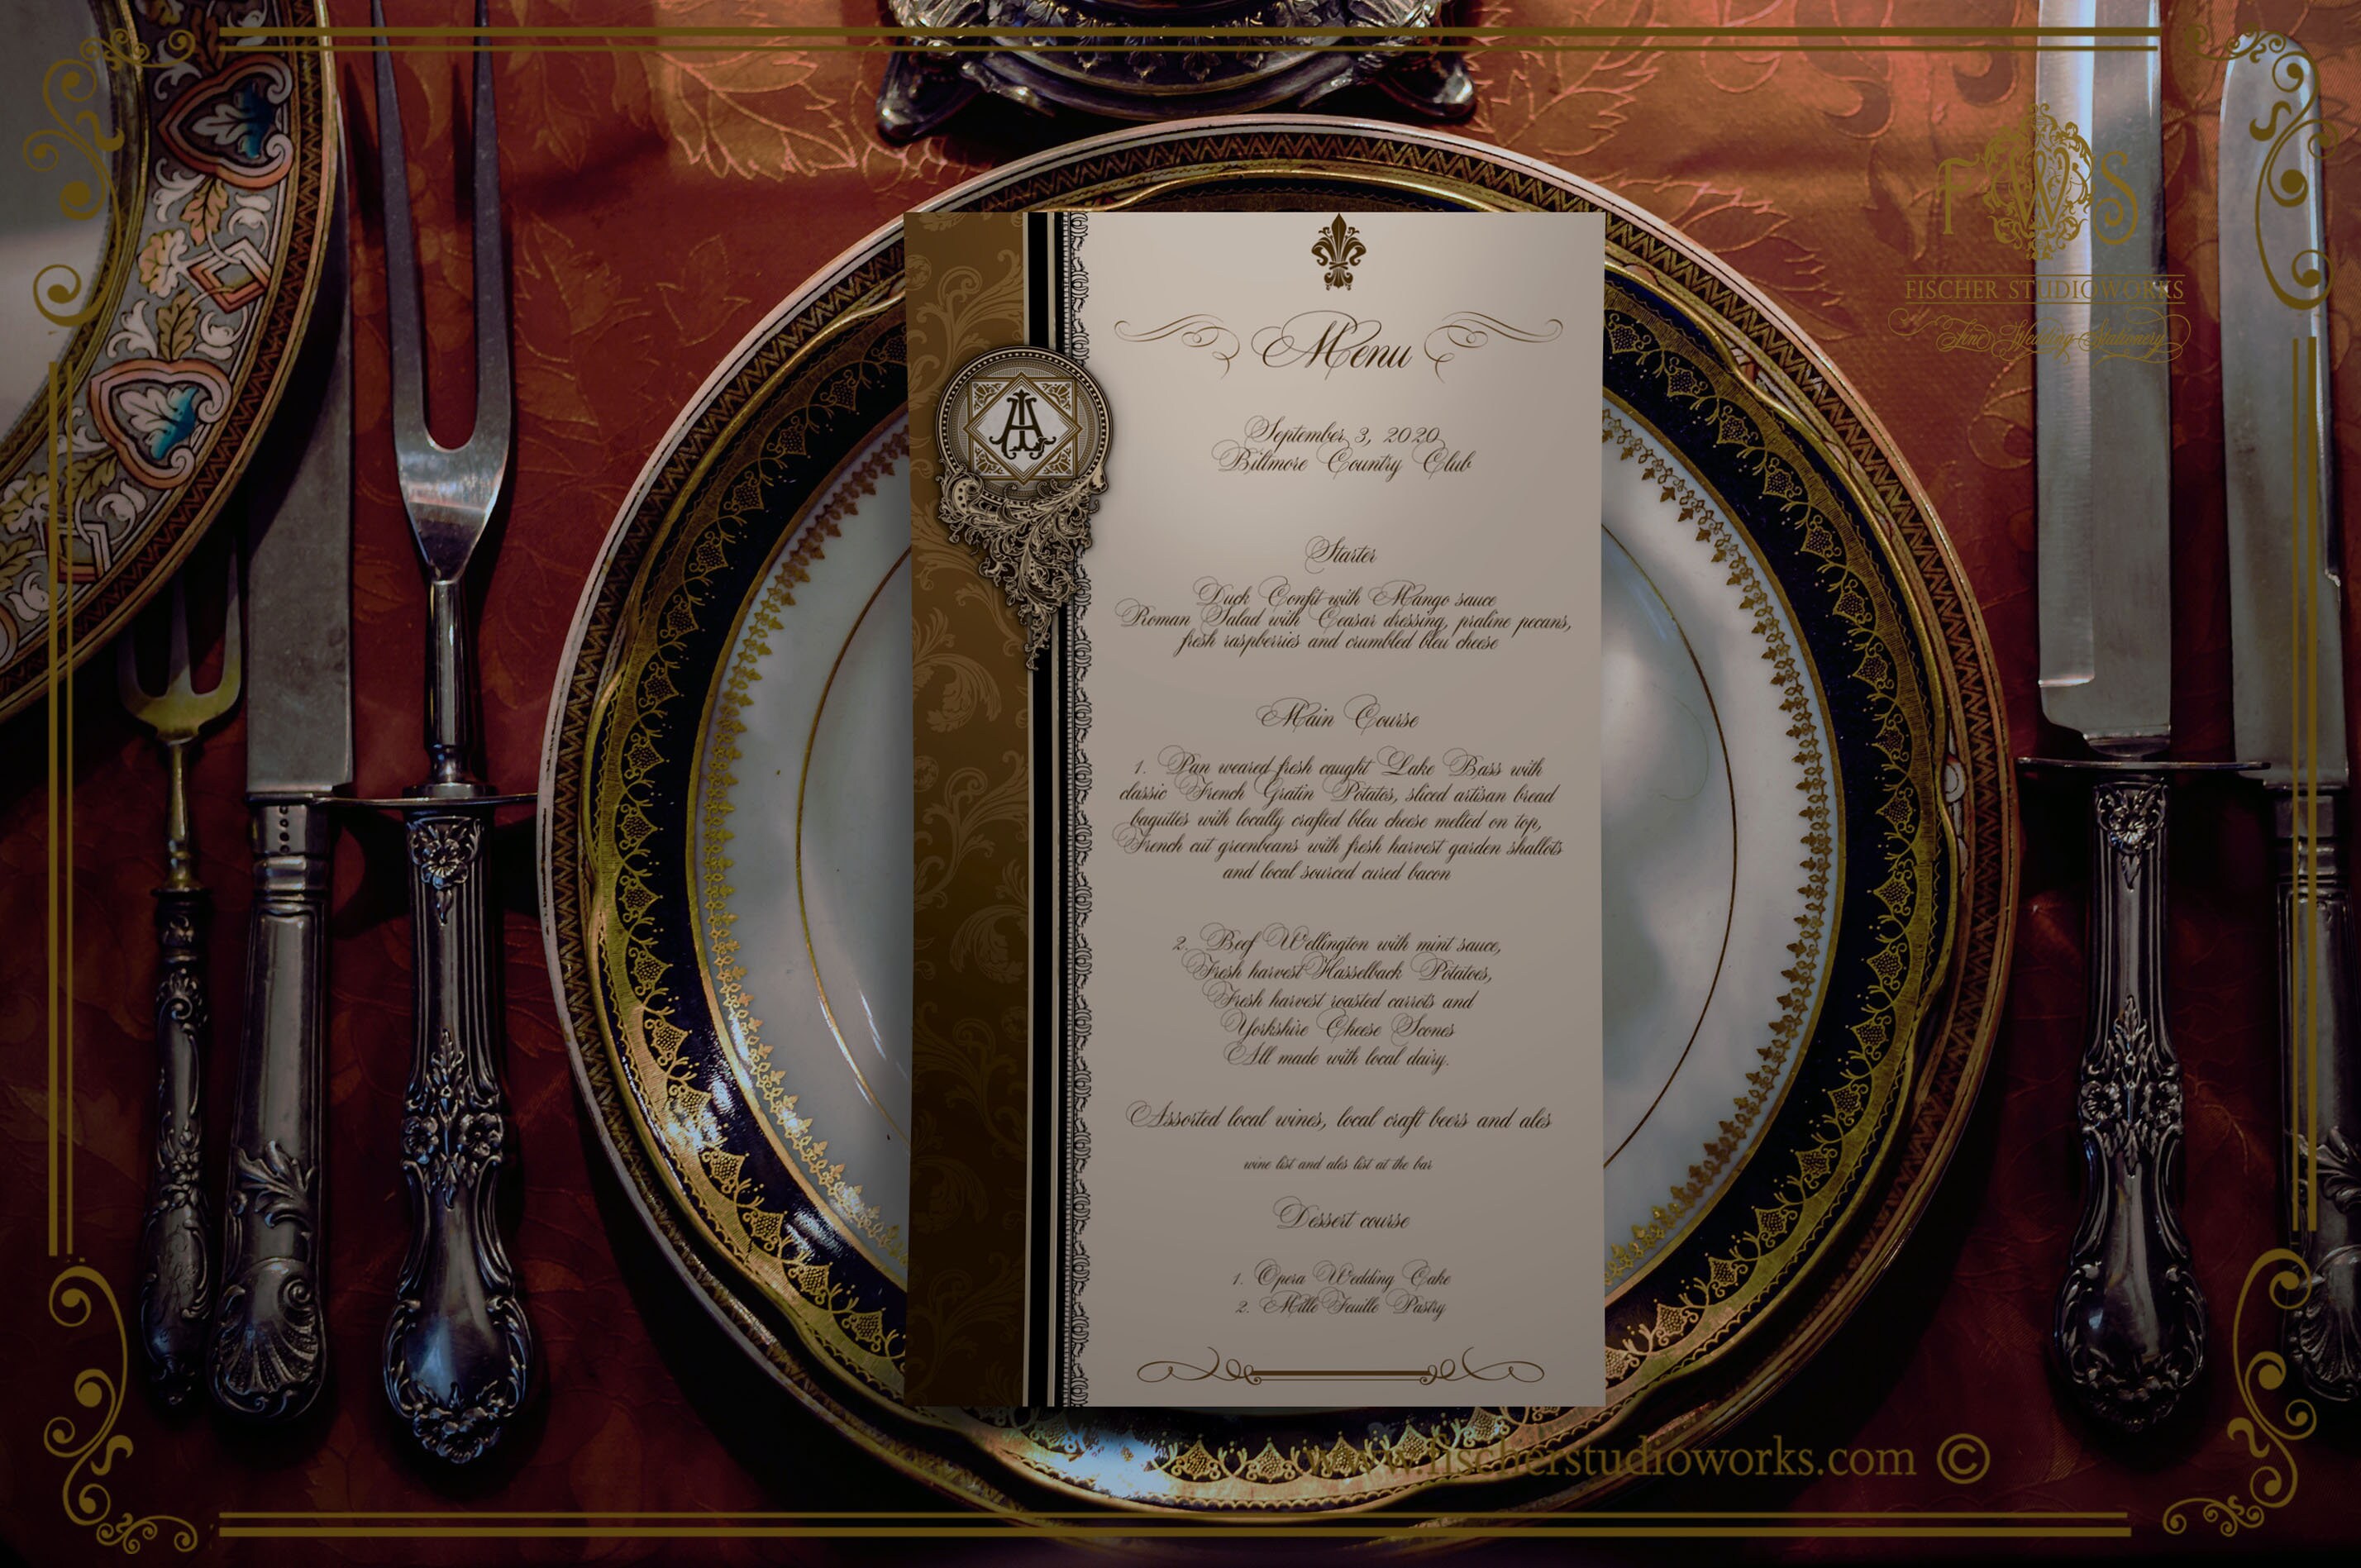 Menu
September 3, 2020
Biltmore Country Club
Starter
Duck Confit with Mango sauce
Roman Salad with Ceasar dressing, praline pecans,
fresh raspberries and crumbled bleu cheese
Main Course
1. Pan weared fresh caught Lake Bass with
classic French Gratin Potatos, sliced artisan bread
baguttes with locally crafted bleu cheese melted on top,
French cut greenbeans with fresh harvest garden shallots
and local sourced cured bacon
2. Beef Wellington with mint sauce,
Fresh harvest Hasselback Potatoes,
Fresh harvest roasted carrots and
Yorkshire Cheese Scones
All made with local dairy.
Assorted local wines, local craft beers and ales
wine list and ales list at the bar
Dessert course
1. Opera Wedding Cake
2. Mille Feuille Pastry
FWS
FISCHER STUDIOWORKS
Fine Wedding Stationery
www.fischerstudioworks.com ©